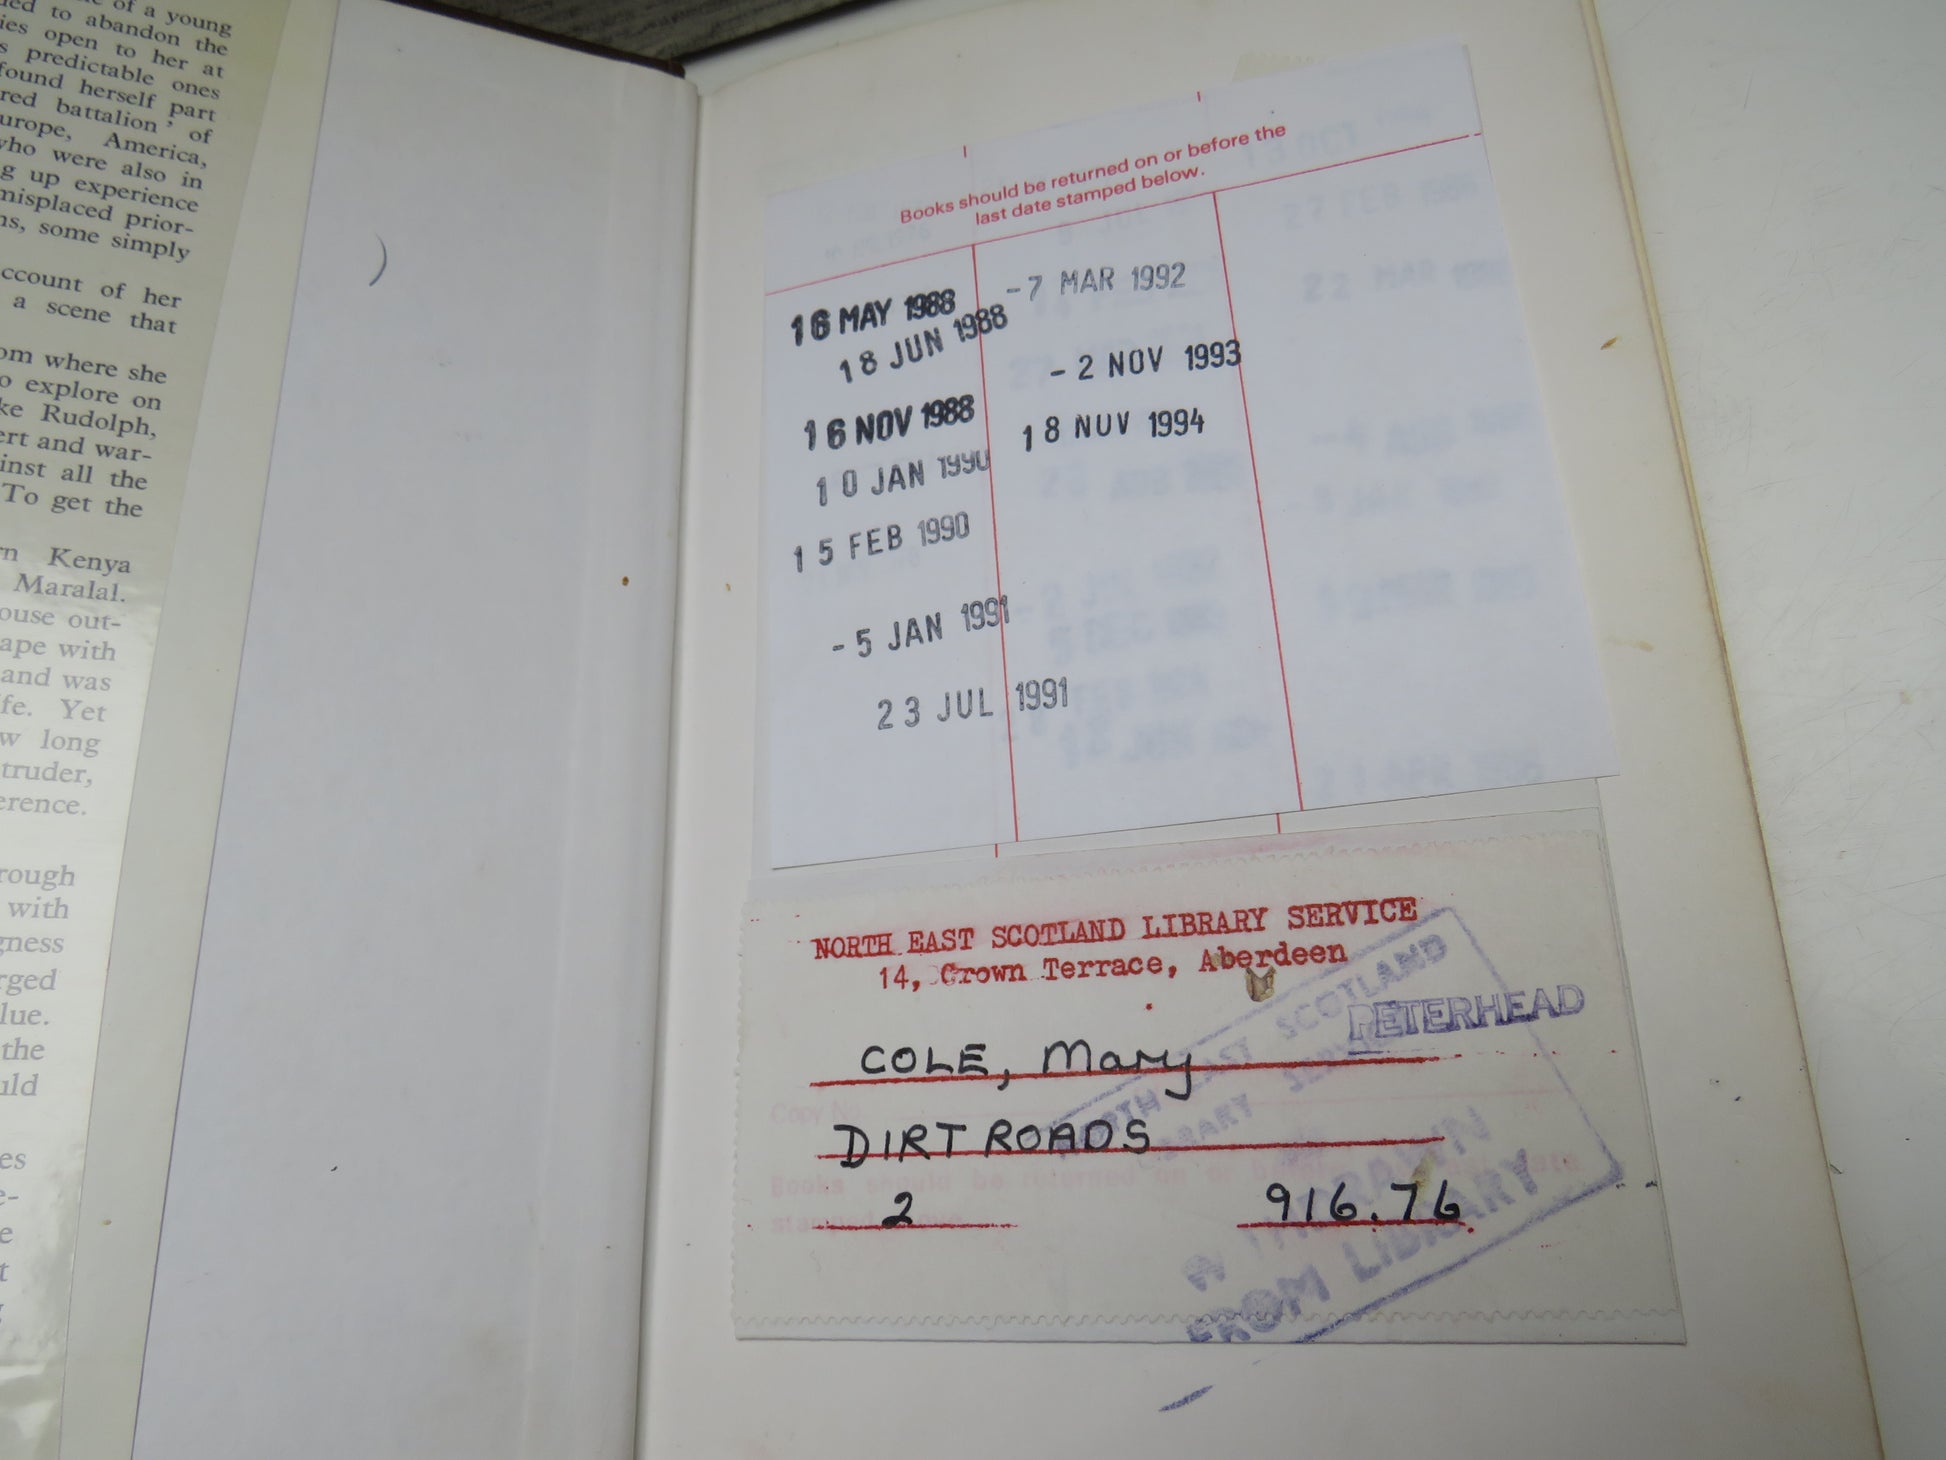 of a young
to abandon the
ies open to her at
s predictable ones
found herself part
red battalion' of
urope, America,
who were also in
g up experience
misplaced prior-
ns, some simply
ccount of her
a scene that
om where she
o explore on
ke Rudolph,
ert and war-
inst all the
To get the
rn Kenya
Maralal.
ouse out-
ape with
and was
fe. Yet
w long
truder,
erence.
rough
with
gness
rged
lue.
the
uld
es
e-
e
t
Books should be returned on or before the
last date stamped below.
16 MAY 1988
18 JUN 1988
16 NOV 1988
10 JAN 1990
15 FEB 1990
-5 JAN 1991
23 JUL 1991
-7 MAR 1992
-2 NOV 1993
18 NOV 1994
NORTH EAST SCOTLAND LIBRARY SERVICE
14, Crown Terrace, Aberdeen
PETERHEAD
COLE, Mary
Copy No.
DIRT ROADS
Books should be returned on or
2 916.76
NORTH EAST SCOTLAND
LIBRARY SERVICE
WITHDRAWN
FROM LIBRARY